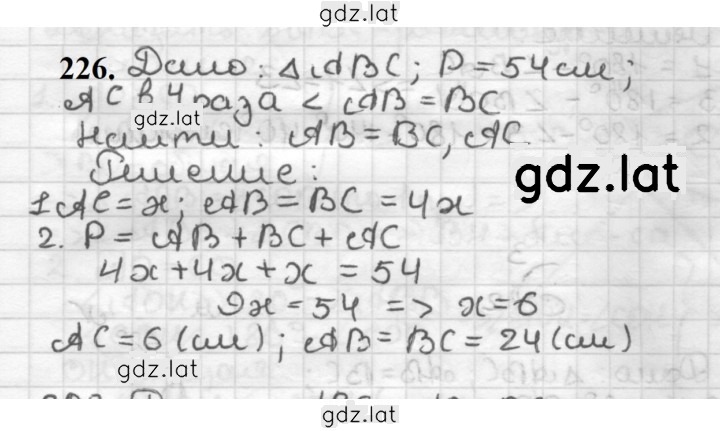 gdz.lat
226. Дано: △ABC; P = 54 см;
AC в 4 раза < AB = BC
gdz.lat
Найти: AB = BC, AC.
gdz.lat
Решение:
1. AC = x; AB = BC = 4x
2. P = AB + BC + AC
4x + 4x + x = 54
9x = 54 => x = 6
AC = 6 (см); AB = BC = 24 (см)
gdz.lat
gdz.lat